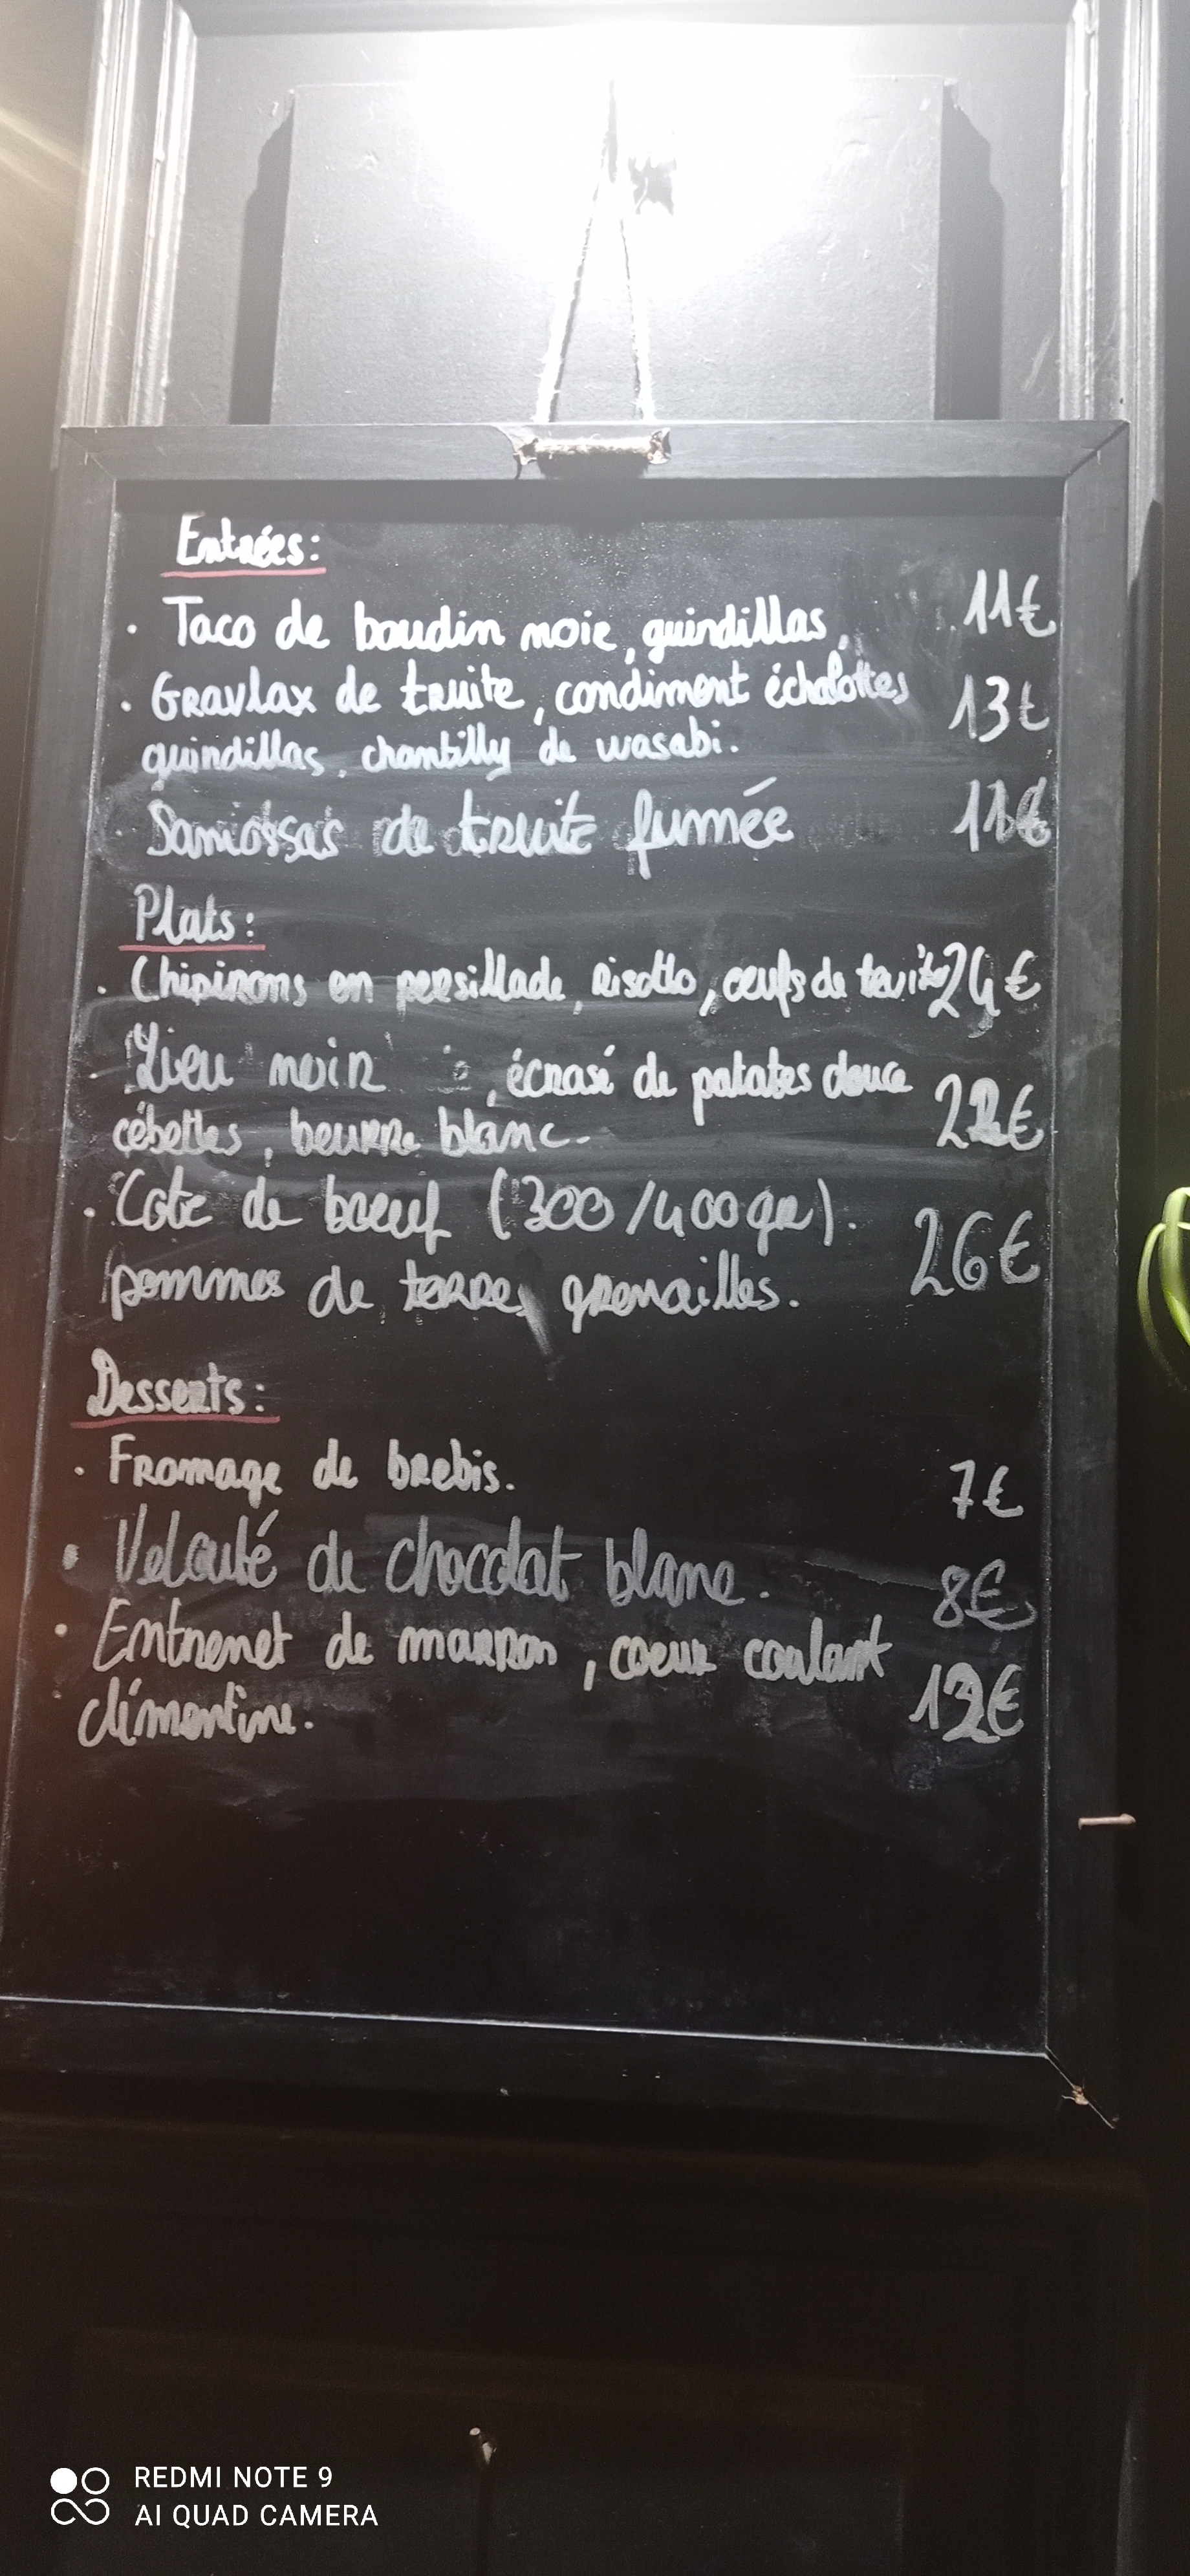 Entrées:
. Taco de boudin noir, guindillas, 11€
. Gravlax de truite, condiment échalottes 13€
guindillas, chantilly de wasabi.
. Samossas de truite fumée 11€
Plats:
. Chipirons en persillade, Risotto, œufs de truite 24€
. Lieu noir , écrasé de patates douce
cébettes, beurre blanc. 22€
. Cote de bœuf (300/400gr).
pommes de terre, grenailles. 26€
Desserts:
. Fromage de brebis. 7€
. Velouté de chocolat blanc. 8€
. Entremet de marron, coeur coulant
clémentine. 12€
REDMI NOTE 9
AI QUAD CAMERA